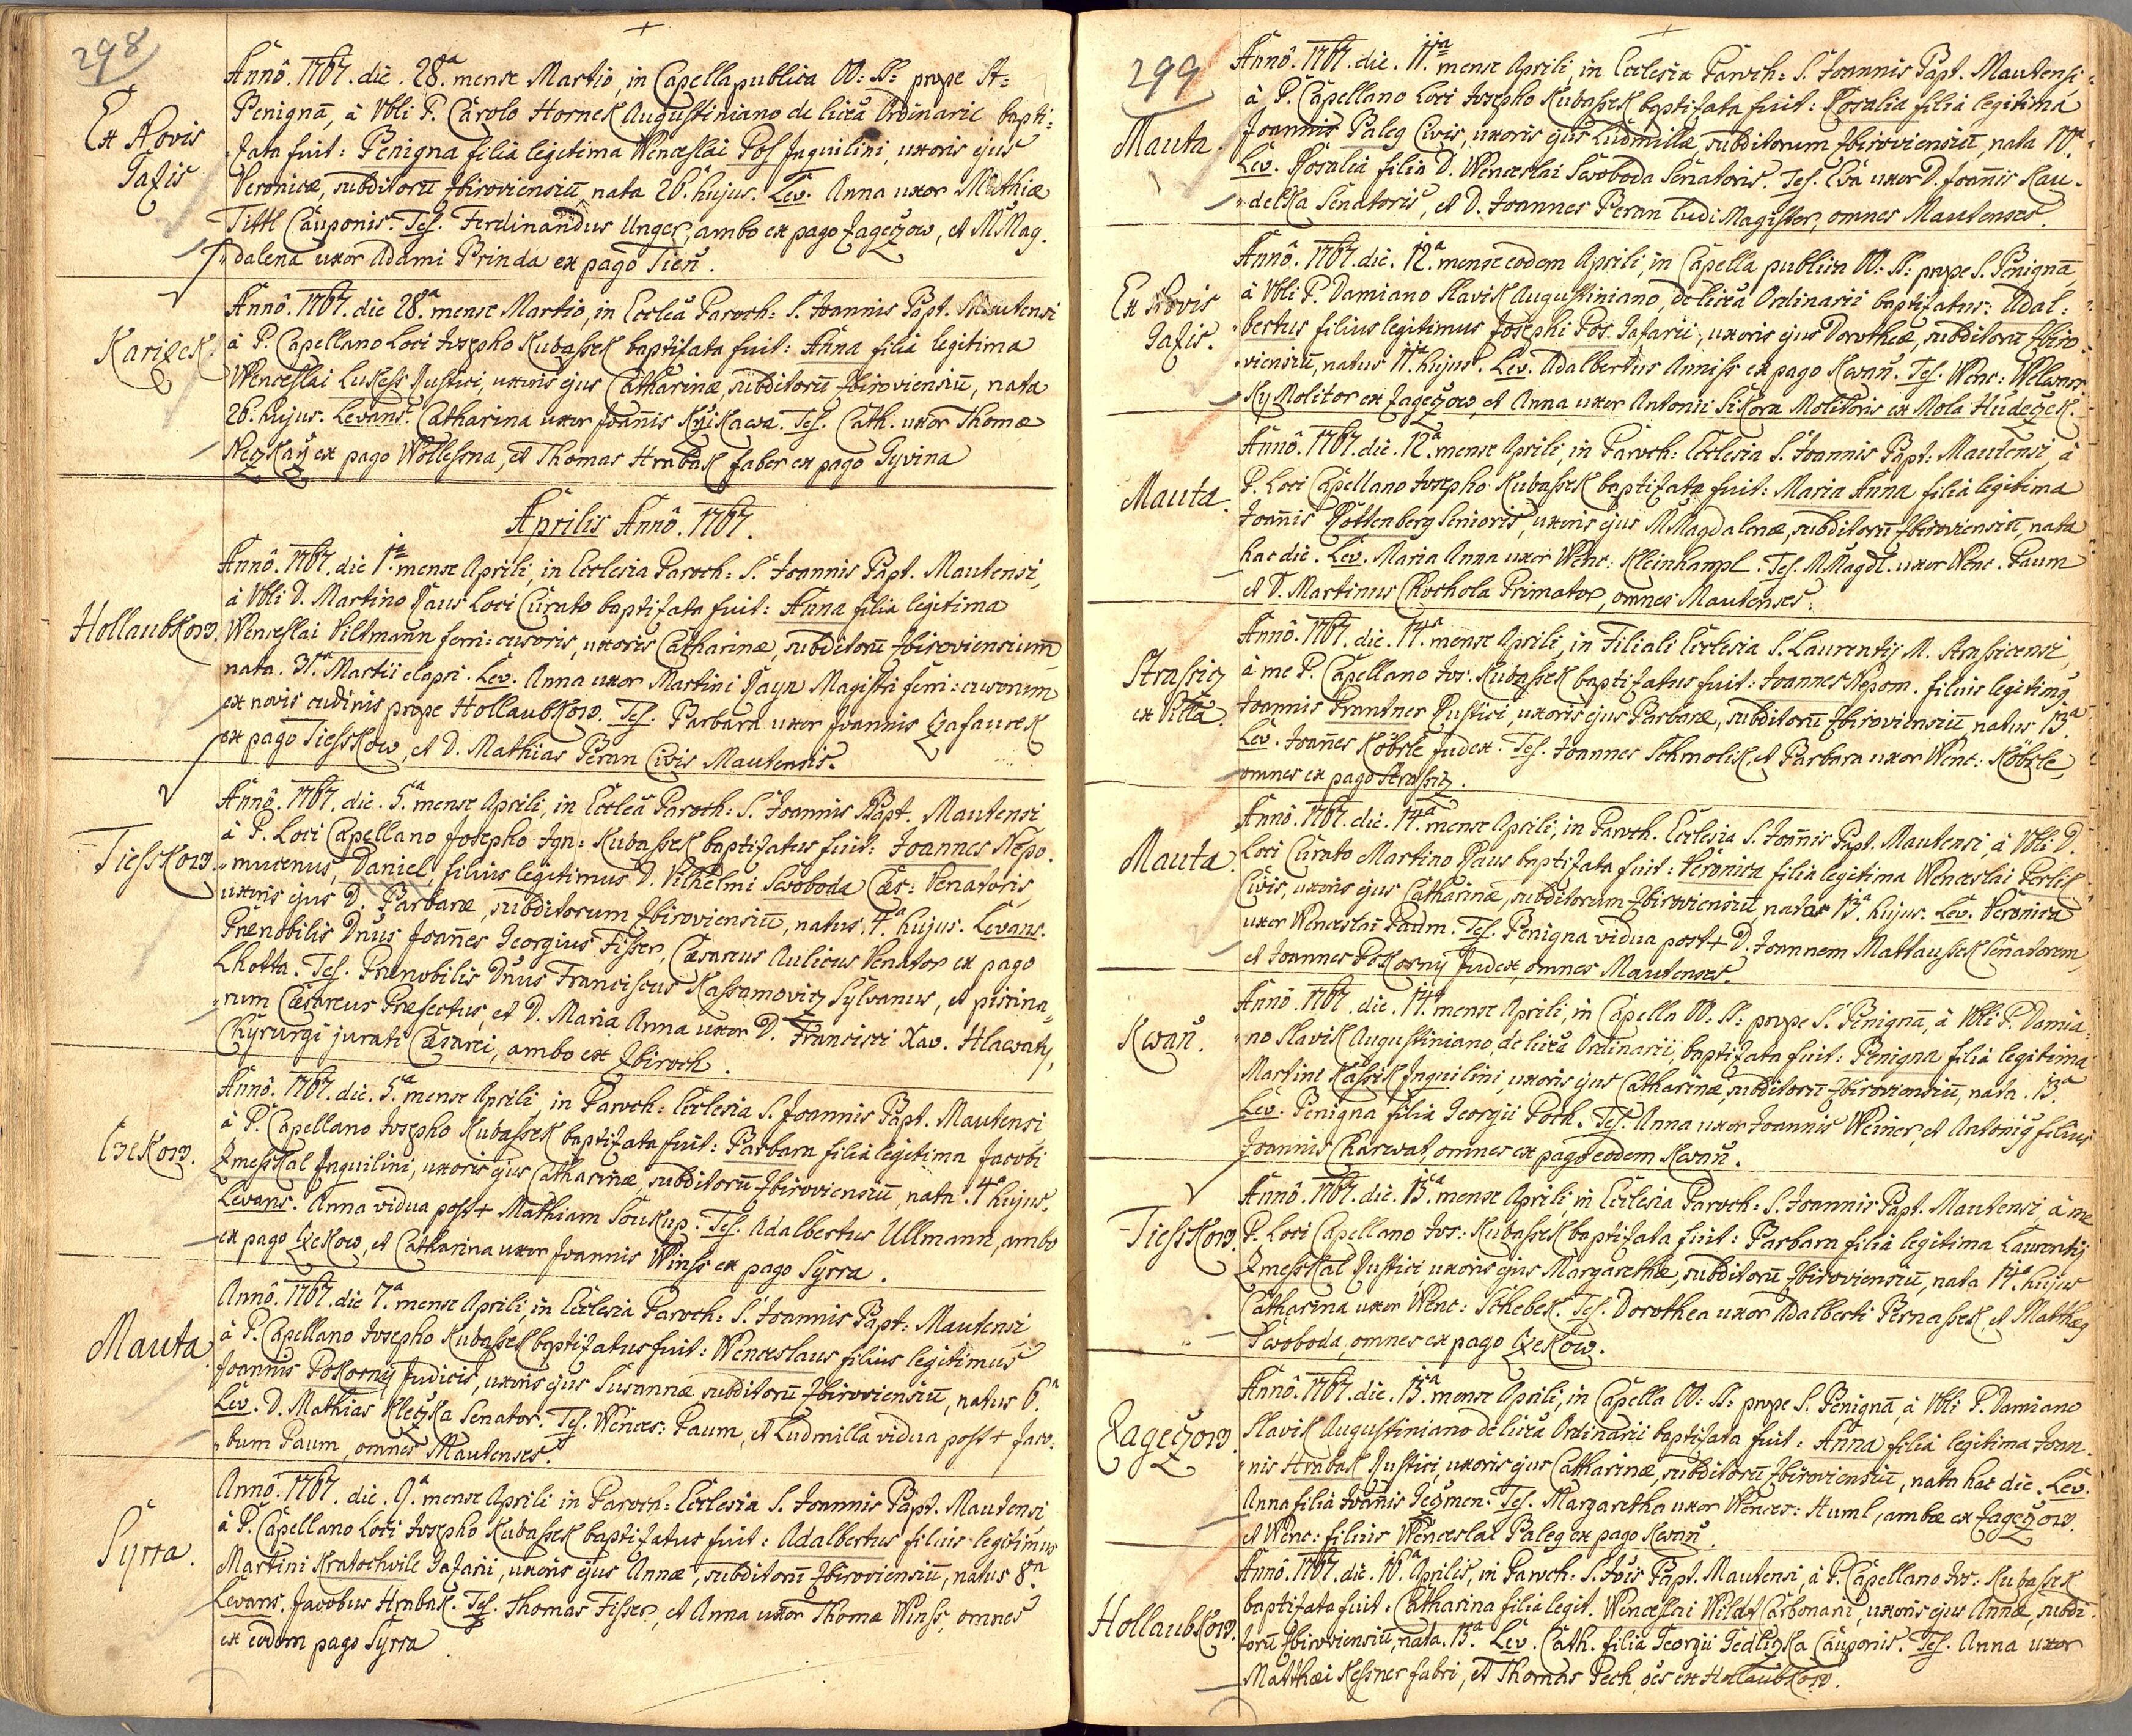 298
Ex Novis
Tafis
Annô. 1767. die. 28.a mense Martio, in Capella publica OO: SS: prope St=
Benignã, à Vbli P. Carolo Hornek Augustiniano de licã Ordinarii bapti=
zata fuit: Benigna filia legitima Wenceslai Pos Inquilini, uxoris ejus
Veronicæ, subditorũ Zbiroviensiũ, nata 26. hujus. Lev. Anna uxor Mathiæ
Tittl Cauponis. Tes. Ferdinandus Unger, ambo ex pago Zageczow, et M Mag.
dalena uxor Adami Brinda ex pago Tien̄.
Karizek
Annô. 1767. die 28.a mense Martio, in Eccleã Paroch: S. Joannis Bapt. Mautensi
à P. Capellano Loci Josepho Kubassek baptizata fuit: Anna filia legitima
Wenceslai Lukess Rustici, uxoris ejus Catharinæ, subditorũ Zbiroviensiũ, nata
26. hujus. Levans. Catharina uxor Joan̄is Krzikawa. Tes. Cath. uxor Thomæ
Neczkarz ex pago Wollessna, et Thomas Hrabak faber ex pago Gyvina
Aprilis Annô. 1767.
Hollaubkow.
Annô. 1767. die 1.a mense Aprili, in Ecclesia Paroch: S. Joannis Bapt. Mautensi,
à Vbli D. Martino Paus Loci Curato baptizata fuit: Anna filia legitima
Wenceslai Viltmann ferri=cusoris, uxoris Catharinæ, subditorũ Zbiroviensium
nata. 31.a Martii elapsi. Lev. Anna uxor Martini Payr Magistri ferri=cusorum
ex novis cudinis prope Hollaubkow. Tes. Barbara uxor Joannis Zafaurek
ex pago Tiesskow, et D. Mathias Beran Civis Mautensis.
Tiesskow.
Annô. 1767. die. 5.a mense Aprili, in Eccleã Paroch: S. Joannis Bapt. Mautensi
à P. Loci Capellano Josepho Ign: Kubassek baptizatus fuit: Joannes Nepo.
mucenus, Daniel filius legitimus D. Vilhelmi Swoboda Cæs: Venatoris,
uxoris ejus D. Barbaræ, subditorum Zbiroviensiũ, natus. 4.a hujus. Levans.
Prænobilis Dñus Joan̄es Georgius Fisser, Cæsareus Aulicus Venator ex pago
Lhotta. Tes. Prænobilis Dñus Franciscus Kassamovicz Sylvanus, et piscina=
rum Cæsareus Præfectus, et D. Maria Anna uxor D. Francisci Xav. Hlawaty,
Chyrurgi jurati Cæsarei, ambo ex Zbiroch.
Czekow.
Annô. 1767. die. 5.a mense Aprili, in Paroch: Ecclesia S. Joannis Bapt. Mautensi
à P. Capellano Josepho Kubassek baptizata fuit: Barbara filia legitima Jacobi
Zmesskal Inquilini, uxoris ejus Catharinæ, subditorũ Zbiroviensiũ, nata. 4.a hujus.
Levans. Anna vidua post + Mathiam Soukup. Tes. Adalbertus Ullmann, ambo
ex pago Czekow, et Catharina uxor Joannis Winss ex pago Syrra.
Mauta.
Annô. 1767. die 7.a mense Aprili, in Ecclesia Paroch: S. Joannis Bapt: Mautensi
à P. Capellano Josepho Kubassek baptizatus fuit: Wenceslaus filius legitimus
Joannis Pokorny Judicis, uxoris ejus Susannæ subditorũ Zbiroviensiũ, natus 6.a
Lev. D. Mathias Kleczka Senator. Tes. Wences: Baum, et Ludmilla vidua post + Jaco=
bum Baum, omnes Mautenses.
Syrra.
Annô. 1767. die. 9.a mense Aprili in Paroch: Ecclesia S. Joannis Bapt. Mautensi
à P. Capellano Loci Josepho Kubassek baptizatus fuit: Adalbertus filius legitimus
Martini Kratochwile Tafarii, uxoris ejus Annæ, subditorũ Zbiroviensiũ, natus 8.a
Levans. Jacobus Hrabak. Tes. Thomas Fisser, et Anna uxor Thomæ Winss, omnes
ex eodem pago Syrra.
299
Mauta.
Annô. 1767. die. 11.a mense Aprili, in Ecclesia Paroch: S. Joannis Bapt. Mautensi
à P. Capellano Loci Josepho Kubassek baptizata fuit: Rosalia filia legitima
Joannis Paleg Civis, uxoris ejus Ludmillæ, subditorum Zbiroviensiũ, nata 10.a
Lev. Rosalia filia D. Wenceslai Swoboda Senatoris. Tes. Eva uxor D. Joan̄is Kau=
delka Senatoris, et D. Joannes Beran Ludi Magister, omnes Mautenses.
Ex Novis
Tafis.
Annô. 1767. die. 12.a mense eodem Aprili, in Capella publica OO: SS: prope S. Benignã,
à Vbli P. Damiano Slavik Augustiniano, de licã Ordinarii baptizatus: Adal=
bertus filius legitimus Josephi Pos Tafarii, uxoris ejus Dorotheæ, subditorũ Zbiro
viensiũ, natus 11.a hujus. Lev. Adalbertus Anniss ex pago Kwan̄. Tes. Wenc: Wllwner
ky Molitor ex Zageczow, et Anna uxor Antonii Sikora Molitoris ex Mola Hudeczek.
Mauta.
Annô. 1767. die. 12.a mense Aprili, in Paroch: Ecclesia S. Joannis Bapt: Mautensi, à
P. Loci Capellano Josepho Kubassek baptizata fuit: Maria Anna filia legitima
Joan̄is Rottenberg Senioris, uxoris ejus M Magdalenæ, subditorũ Zbiroviensiũ, nata
hac die. Lev. Maria Anna uxor Wenc: Kleinhampl. Tes. M Magdl. uxor Wenc. Baum
et D. Martinus Chochola Primator, omnes Mautenses.
Strassicz
ex Villa.
Annô. 1767. die. 14.a mense Aprili, in Filiali Ecclesia S. Laurentij M. Strassicensi,
à me P. Capellano Jos: Kubassek baptizatus fuit: Joannes Nepom. filius legitimg
Joannis Brantner Rustici, uxoris ejus Barbaræ, subditorũ Zbiroviensiũ, natus 13.a
Lev. Joan̄es Köbrle Judex. Tes. Joannes Schmolik, et Barbara uxor Wenc: Köbrle,
omnes ex pago Strassicz.
Mauta.
Annô. 1767. die. 14.a mense Aprili, in Paroch. Ecclesia S. Joan̄is Bapt. Mautensi, à Vbli D.
Loci Curato Martino Paus baptizata fuit: Veronica filia legitima Wenceslai Perlik
Civis, uxoris ejus Catharinæ, subditorum Zbiroviensiũ, nata 13.a hujus. Lev. Veronica
uxor Wenceslai Baum. Tes. Benigna vidua post + D. Joannem Mattaussek Senatorem,
et Joannes Pokorny Judex, omnes Mautenses.
Kwan̄.
Annô. 1767. die. 14.a mense Aprili, in Capella OO: SS: prope S. Benignã, à Vbli P. Damia=
no Slavik Augustiniano, de licã Ordinarii, baptizata fuit: Benigna filia legitima
Martini Kassik Inquilini, uxoris ejus Catharinæ, subditorũ Zbiroviensiũ, nata. 13.a
Lev. Benigna filia Georgii Poth. Tes. Anna uxor Joannis Weiner, et Antonig filius
Joannis Charwat, omnes ex pago eodem Kwan̄.
Tiesskow.
Annô. 1767. die. 15.a mense Aprili, in Ecclesia Paroch: S. Joannis Bapt. Mautensi à me
P. Loci Capellano Jos: Kubassek baptizata fuit: Barbara filia legitima Laurentij
Zmesskal Rustici, uxoris ejus Margarethæ, subditorũ Zbiroviensiũ, nata 14.a hujus
Catharina uxor Wenc: Schebek. Tes. Dorothea uxor Adalberti Bernassek, et Matthæg
Swoboda, omnes ex pago Czekow.
Zageczow.
Annô. 1767. die. 15.a mense Aprili, in Capella OO: SS: prope S. Benignã, à Vbli P. Damiano
Slavik Augustiniano de licã Ordinarii baptizata fuit: Anna filia legitima Joan=
nis Hrabak Rustici, uxoris ejus Catharinæ, subditorũ Zbiroviensiũ, nata hac die. Lev.
Anna filia Joan̄is Geczmen. Tes. Margaretha uxor Wences: Huml, ambæ ex Zageczow.
et Wenc: filius Wenceslai Paleg ex pago Kwan̄.
Hollaubkow.
Annô. 1767. die. 16.a Aprilis, in Paroch: S. Jois Bapt. Mautensi, à P. Capellano Jos: Kubassek
baptizata fuit. Catharina filia legit. Wenceslai Wildt Carbonarii, uxoris ejus Annæ, subdi=
torũ Zbiroviensiũ, nata. 15.a Lev. Cath. filia Georgii Gedliczka Cauponis. Tes. Anna uxor
Matthæi Kessner fabri, et Thomas Pech, oẽs ex Hollaubkow.